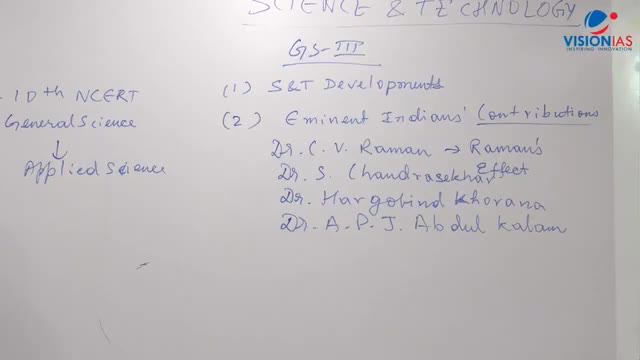 SCIENCE & TECHNOLOGY
VISIONIAS
INSPIRING INNOVATION
GS-III
10th NCERT
General Science
↓
Applied Science
(1) S&T Developments
(2) Eminent Indians' Contributions
Dr. C. V. Raman → Raman's
Effect
Dr. S. Chandrasekhar
Dr. Hargobind Khorana
Dr. A. P. J. Abdul Kalam